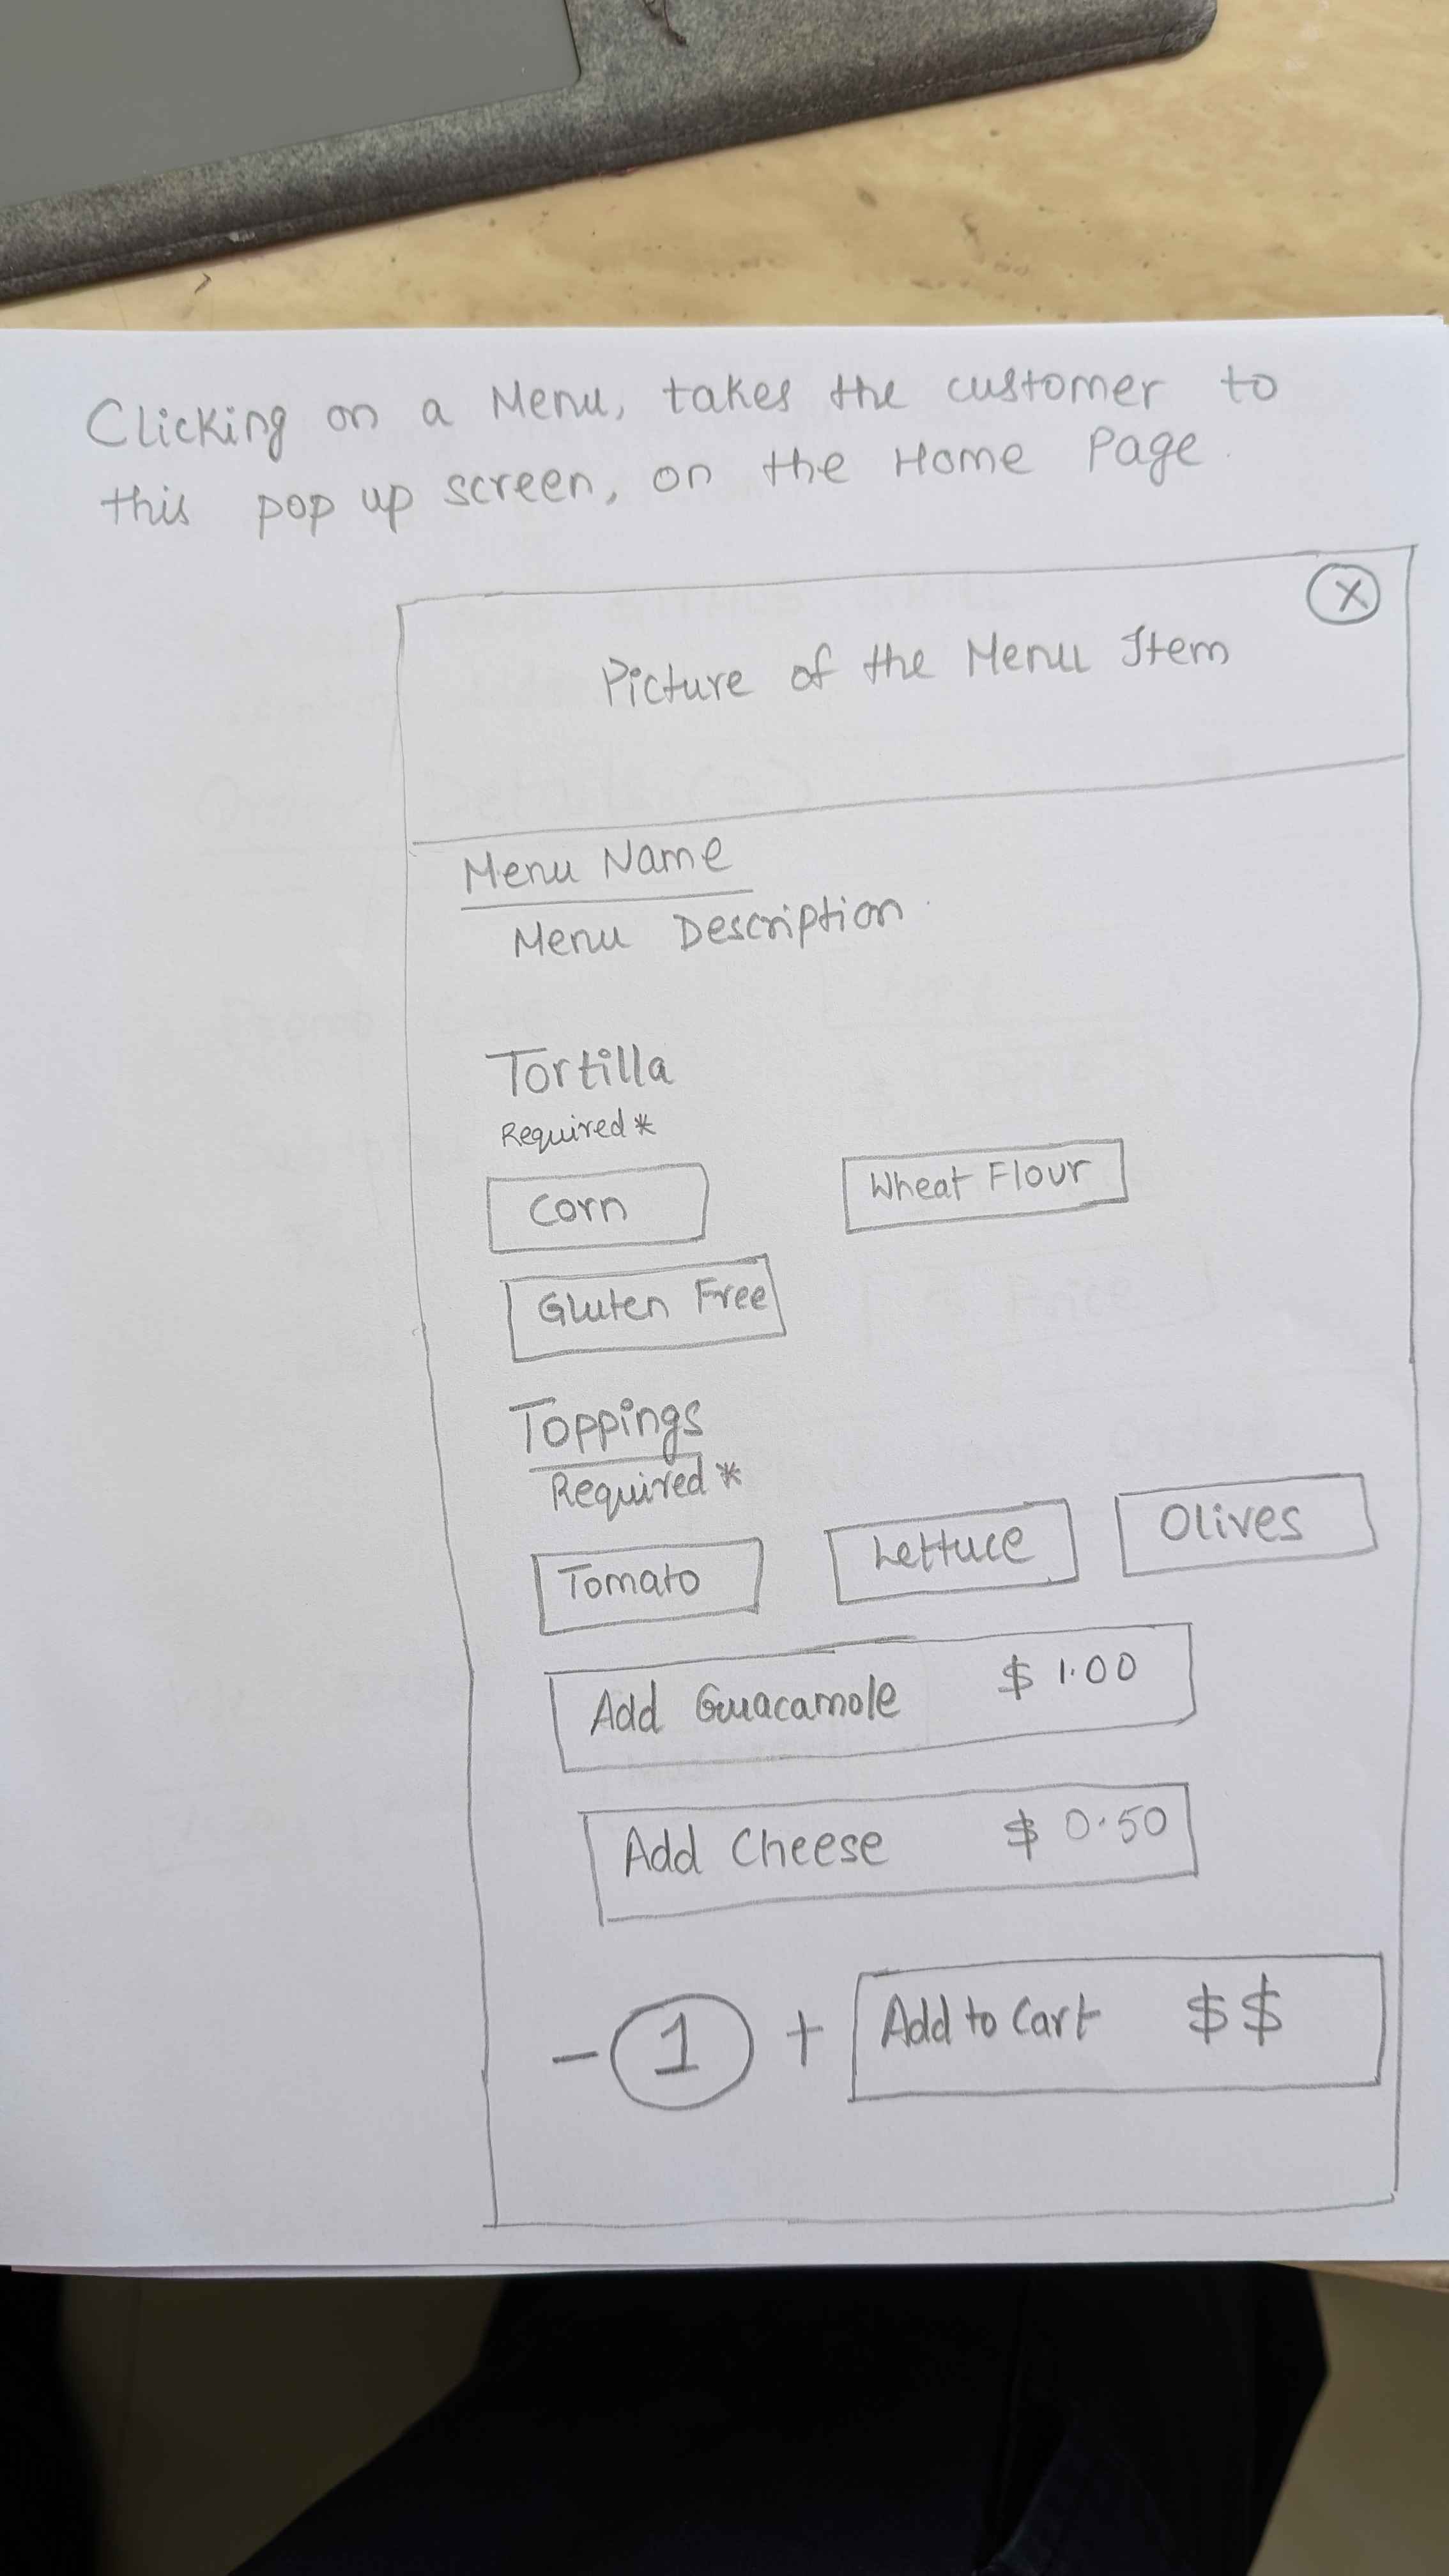 Clicking on a Menu, takes the customer to
this pop up screen, on the Home Page.
X
Picture of the Menu Item
Menu Name
Menu Description
Tortilla
Required*
Corn Wheat Flour
Gluten Free
Toppings
Required*
Tomato Lettuce Olives
Add Guacamole $ 1.00
Add Cheese $ 0.50
- 1 + Add to Cart $$